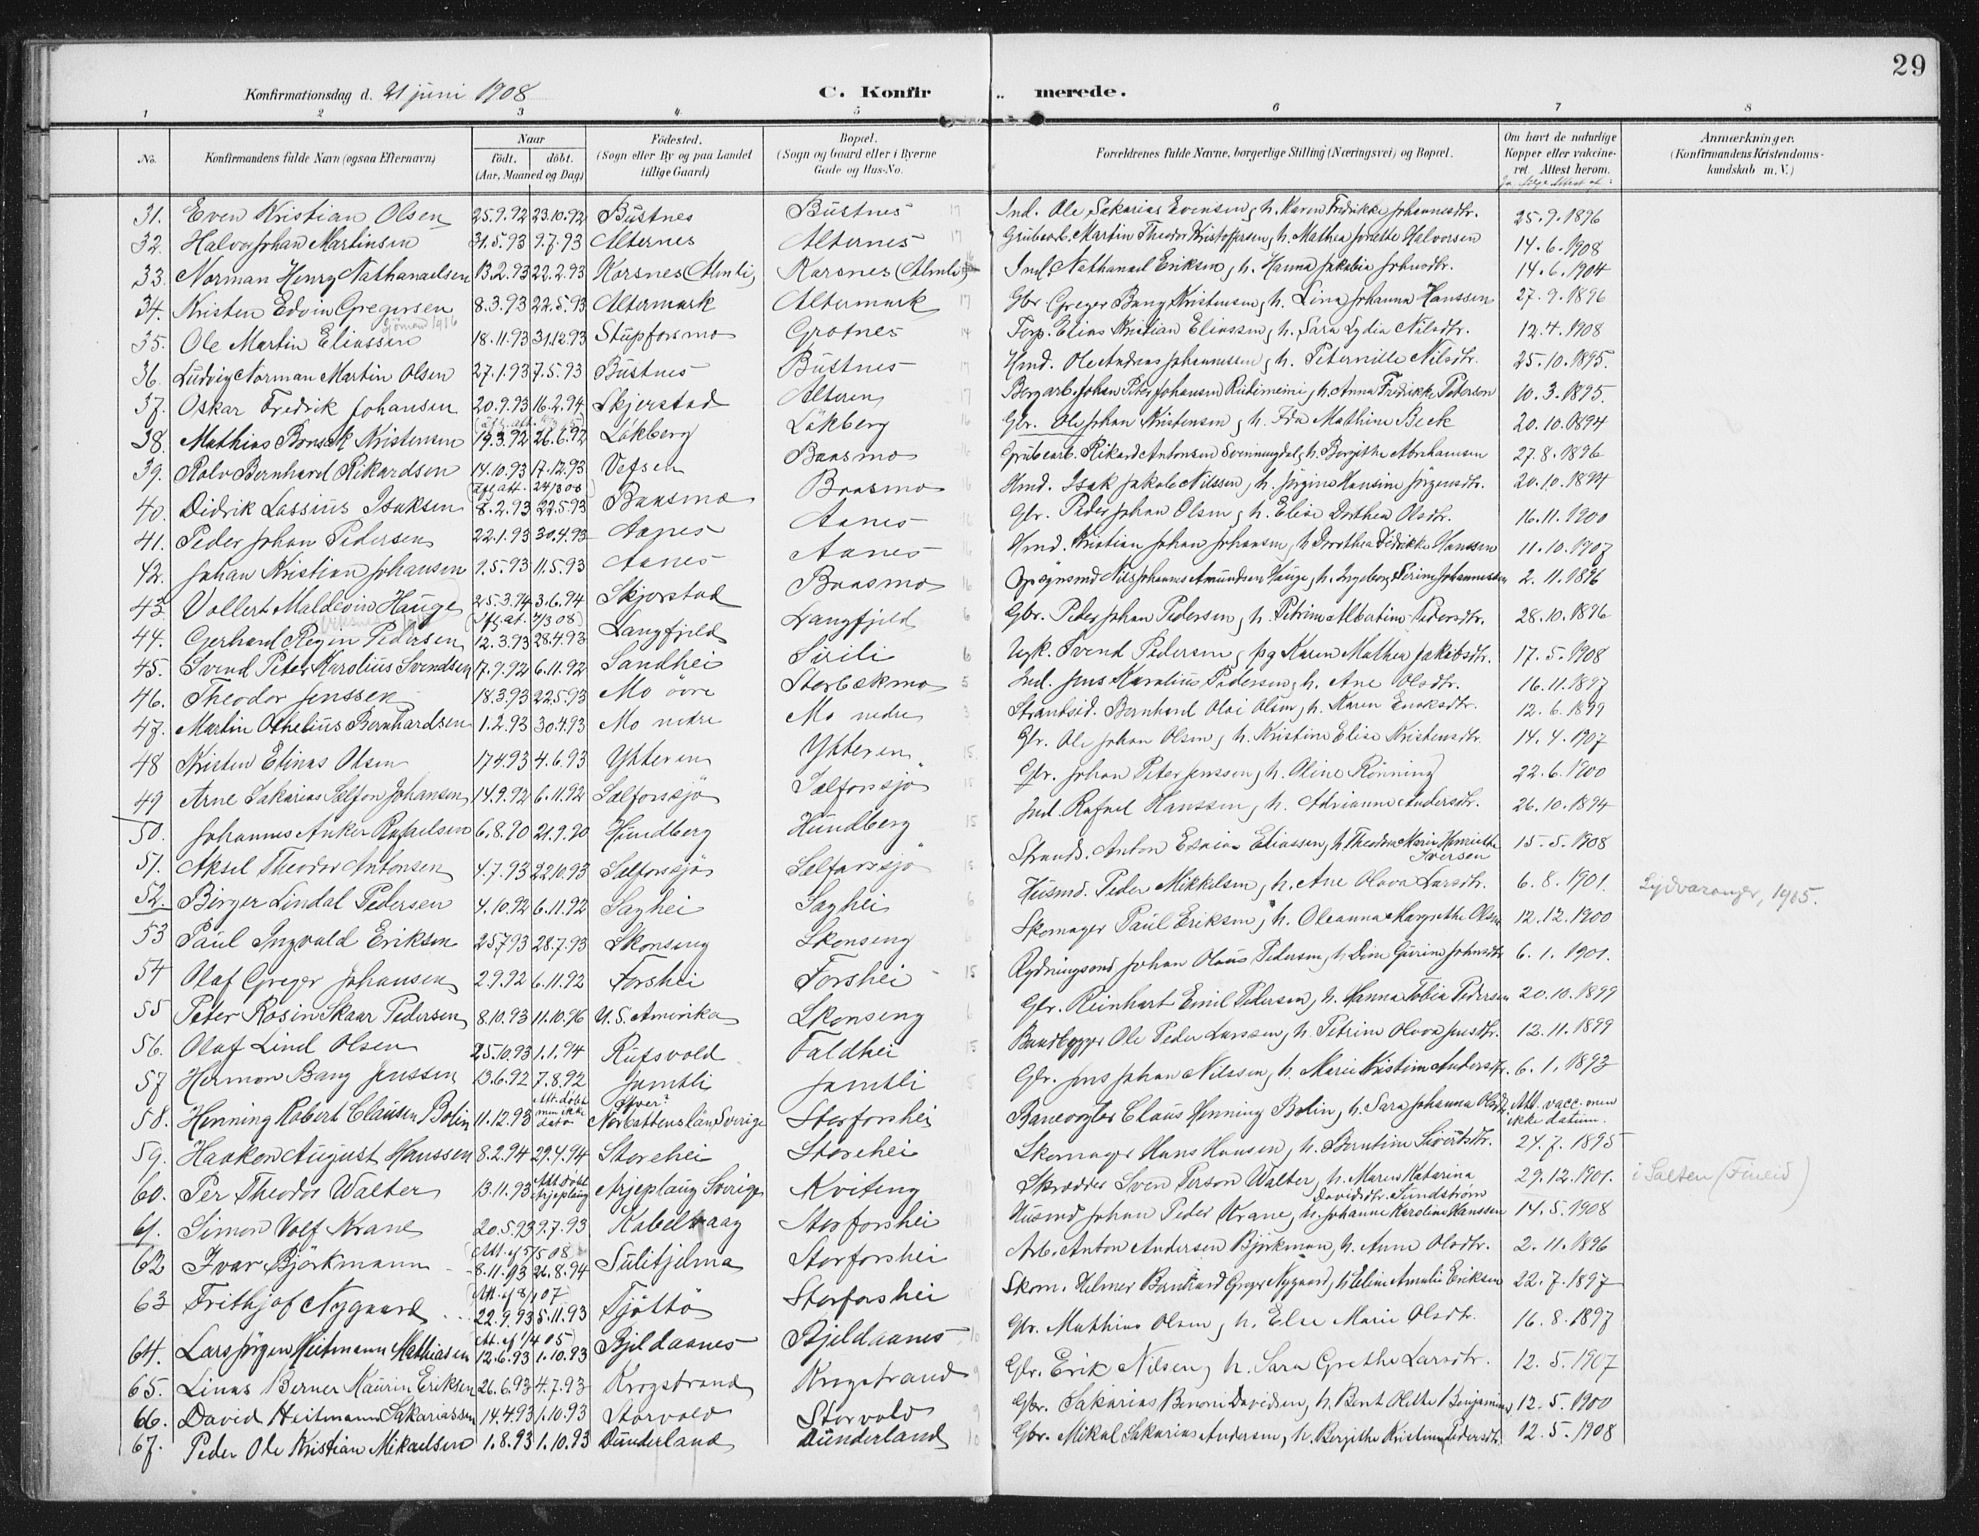 29
Konfirmationsdag d. 21 juni 1908 C. Konfir merede.
1 2 3 4 5 6 7 8
No. Konfirmandens fulde Navn (ogsaa Efternavn) Naar født. døbt. (Aar, Maaned og Dag) Fødested. (Sogn eller By og paa Landet tillige Gaard) Bopæl. (Sogn og Gaard eller i Byerne Gade og Hus-No. Forældrenes fulde Navne, borgerlige Stilling (Næringsvei) og Bopæl. Om havt de naturlige Kopper eller vakcineret. Attest herom. Anmærkninger. (Konfirmandens Kristendomskundskab m. V.)
31. Even Kristian Olsen 25.9.92 23.10.92 Büstnes Büstnes 17 Ind. Ole Sakarias Evensen, h. Karen Fredrikke Johannesdtr. 25.9.1896
32. Halvor Johan Martinsen 31.5.93 9.7.93 Alternes Alternes 17 Grubearb. Martin Theodor Kristoffersen, h. Mathea Jonette Halvorsen 14.6.1908
33. Norman Henry Nathanaelsen 13.2.93 22.2.93 Korsnes (Almli) Korsnes (Almli) Ind. Nathanael Eriksen, h. Hanna Jakobia Johnsdtr. 14.6.1904
34. Kristen Edvin Gregersen 8.3.93 22.5.93 Altermark Altermark 17 Gbr Greger Bang Kristensen, h. Lina Johanna Hanssen 27.9.1896
35. Ole Martin Eliassen 18.11.93 31.12.93 Stupforsmo Grotnes 14 Forp. Elias Kristian Eliassen, h. Sara Lydia Nilsdtr. 12.4.1908
36. Ludvig Norman Martin Olsen 27.1.93 7.5.93 Büstnes Büstnes 17 Hmd. Ole Andreas Johannessen, h. Peternille Nilsdtr. 25.10.1895.
37. Oskar Fredrik Johansen 20.9.93 16.2.94 Skjerstad Alteren 17 Bergarb. Johan Peter Johansen Rudimeini, h. Anna Fredrikke Peterson 10.3.1895.
38. Mathias Bonsak Kristensen 19.3.92 26.6.92 Läkberg Läkberg 16 Gbr. Ole Johan Kristensen, h. Ida Mathine Beck 20.10.1894
39. Rolv Bernhard Rikardsen 14.10.93 17.12.93 Vefsen Baasmo 16 Grubearb. Rikard Antonsen Svenningdal, h. Bergithe Abrahamsen 27.8.1896
(Ifl. att. 24/3 08)
40. Didrik Lassius Isaksen 8.2.93 22.5.93 Baasmo Baasmo Hmd. Isak Jakob Nilssen, h. Jörgine Hansine Jörgensdtr. 20.10.1894
41. Peder Johan Pedersen 22.1.93 30.4.93 Aanes Aanes 16 Gbr. Peder Johan Olsen, h. Elise Dorthea Olsdtr. 16.11.1900
42. Johan Kristian Johansen 9.5.93 11.5.93 Aanes Aanes 16 Hmd. Kristian Johan Johansen, h. Dorothea Didrikke Hanssen 11.10.1907
43. Vollert Maldevin Hauge 25.3.94 3.6.94 Skjerstad Baasmo 16 Opsynsmd Nils Johannes Amundsen Hauge, h. Ingeborg Serine Johannessen 2.11.1896
44. Gerhard Regin Pedersen 12.3.93 28.4.93 Langfjeld Langfjeld 6 Gbr. Peder Johan Pedersen, h. Petrine Albertine Pedersdtr. 28.10.1896
45. Svend Peter Karolius Svendsen 17.9.92 6.11.92 Sandhei Sirili 6 Ugk. Svend Pedersen, pg Karen Mathea Jakobsdtr. 17.5.1908
46. Theodor Jenssen 18.3.93 22.5.93 Mo övre Storbækmo 5 Ind. Jens Karolius Pedersen, h. Ane Olsdtr. 16.11.1897
47. Martin Othelius Bernhardsen 1.2.93 30.4.93 Mo nedre Mo nedre 3 Strandsid. Bernhard Olai Olsen, h. Karen Enoksdtr. 12.6.1899
48 Kristen Elinas Olsen 17.4.93 4.6.93 Ytteren Ytteren 15 Gbr. Ole Johan Olsen, h. Kristine Elise Kristensdtr. 14.4.1907
49 Arne Sakarias Sælfors Johansen 14.9.92 6.11.92 Sælforssjö Sælforssjö Gbr. Johan Peter Jenssen, h. Oline Rönning 22.6.1900
50. Johannes Anker Rafaelsen 6.8.90 21.9.90 Hundberg Hundberg 15 Ind. Rafael Hanssen, h. Adrianna Andersdtr. 26.10.1894
51. Aksel Theodor Antonsen 4.7.93 22.10.93 Sælforssjö Sælforssjö Strands. Anton Esaias Eliassen, h. Theodora Marie Henriette Iversen 15.5.1908
52. Birger Lindal Pedersen 4.10.92 6.11.92 Saghei Saghei 6 Husmd. Peder Mikkelsen, h. Ane Olova Larsdtr. 6.8.1901. Sydvaranger, 1915.
53 Paul Ingvald Eriksen 25.7.93 28.7.93 Skonseng Skonseng 6 Skomager Paul Eriksen, h. Oleanna Margrethe Olsen 12.12.1900
54 Olaf Greger Johansen 2.9.92 6.11.92 Forshei Forshei 15 Rydningsmd Johan Olaus Pedersen, h. Dina Gurine Johnsdtr 6.1.1901.
55 Peter Rosin Skaar Pedersen 8.10.93 11.10.96 U.S. Amerika Skonseng 6 Gbr. Reinhart Emil Pedersen, h. Hanna Tobia Pedersen 20.10.1899
56. Olaf Lind Olsen 25.10.93 1.1.94 Rufsvold Faldhei 15 Baadbygger Ole Peder Larssen, h. Petrine Olava Jensdtr. 12.11.1899
57 Hermon Bang Jenssen 13.6.92 7.8.92 Jamtli Jamtli 5 Gbr. Jens Johan Nilssen, h. Marie Kristine Andersdtr. 6.1.1893
58. Henning Robert Clausen Bolin 11.12.93 Att. döbt men ikke dato Norbottenslän Sverige Storforshei Banevogter Claus Henning Bolin, h. Sara Johanna Olsdtr. Att. vacc. men ikke datum.
59. Haakon August Hanssen 8.2.94 29.4.94 Storehei Storehei Skomager Hans Hansen, h. Berntine Sivertsdtr. 24.7.1895
60. Per Theodor Walter 13.11.93 Att. döbt Arjeplaug Arjeplaug Sverige Kviteng Skrædder Sven Person Walter, h. Maria Katarina Davidsdtr. Sundström 29.12.1901. i Salten (Fineid)
61. Simon Volf Krane 20.5.93 9.7.93 Kabelvaag Storforshei Husmd Johan Peder Krane, h. Johanne Karoline Hanssen 14.5.1908
62 Ivar Björkmann 8.11.93 26.8.94 Sulitjelma Storforshei Arb. Anton Andersen Björkman, h. Anne Olsdtr. 2.11.1896
63 Frithjof Nygaard 22.9.93 5.11.93 Tjöttö Storforshei Skom. Helmer Bernhard Greger Nygaard, h. Eline Amalie Eriksen 22.7.1897
64. Lars Jörgen Heitmann Mathiasen 12.6.93 1.10.93 Bjeldaanes Bjeldaanes 10 Gbr. Mathias Olsen, h. Else Marie Olsdtr. 16.8.1897
65. Linas Berner Kaurin Eriksen 26.6.93 4.7.93 Krogstrand Krogstrand 9 Gbr. Erik Nilsen, h. Sara Grethe Larsdtr. 12.5.1907
66. David Heitmann Sakariassen 14.4.93 1.10.93 Storvold Storvold 9 Gbr. Sakarias Benoni Davidsen, h. Bent Olethe Benjamins 12.5.1900
67. Peder Ole Kristian Mikaelsen 1.8.93 1.10.93 Dunderland Dunderland 10 Gbr. Mikal Sakarias Andersen, h. Bergithe Kristine Pedersdtr. 12.5.1908